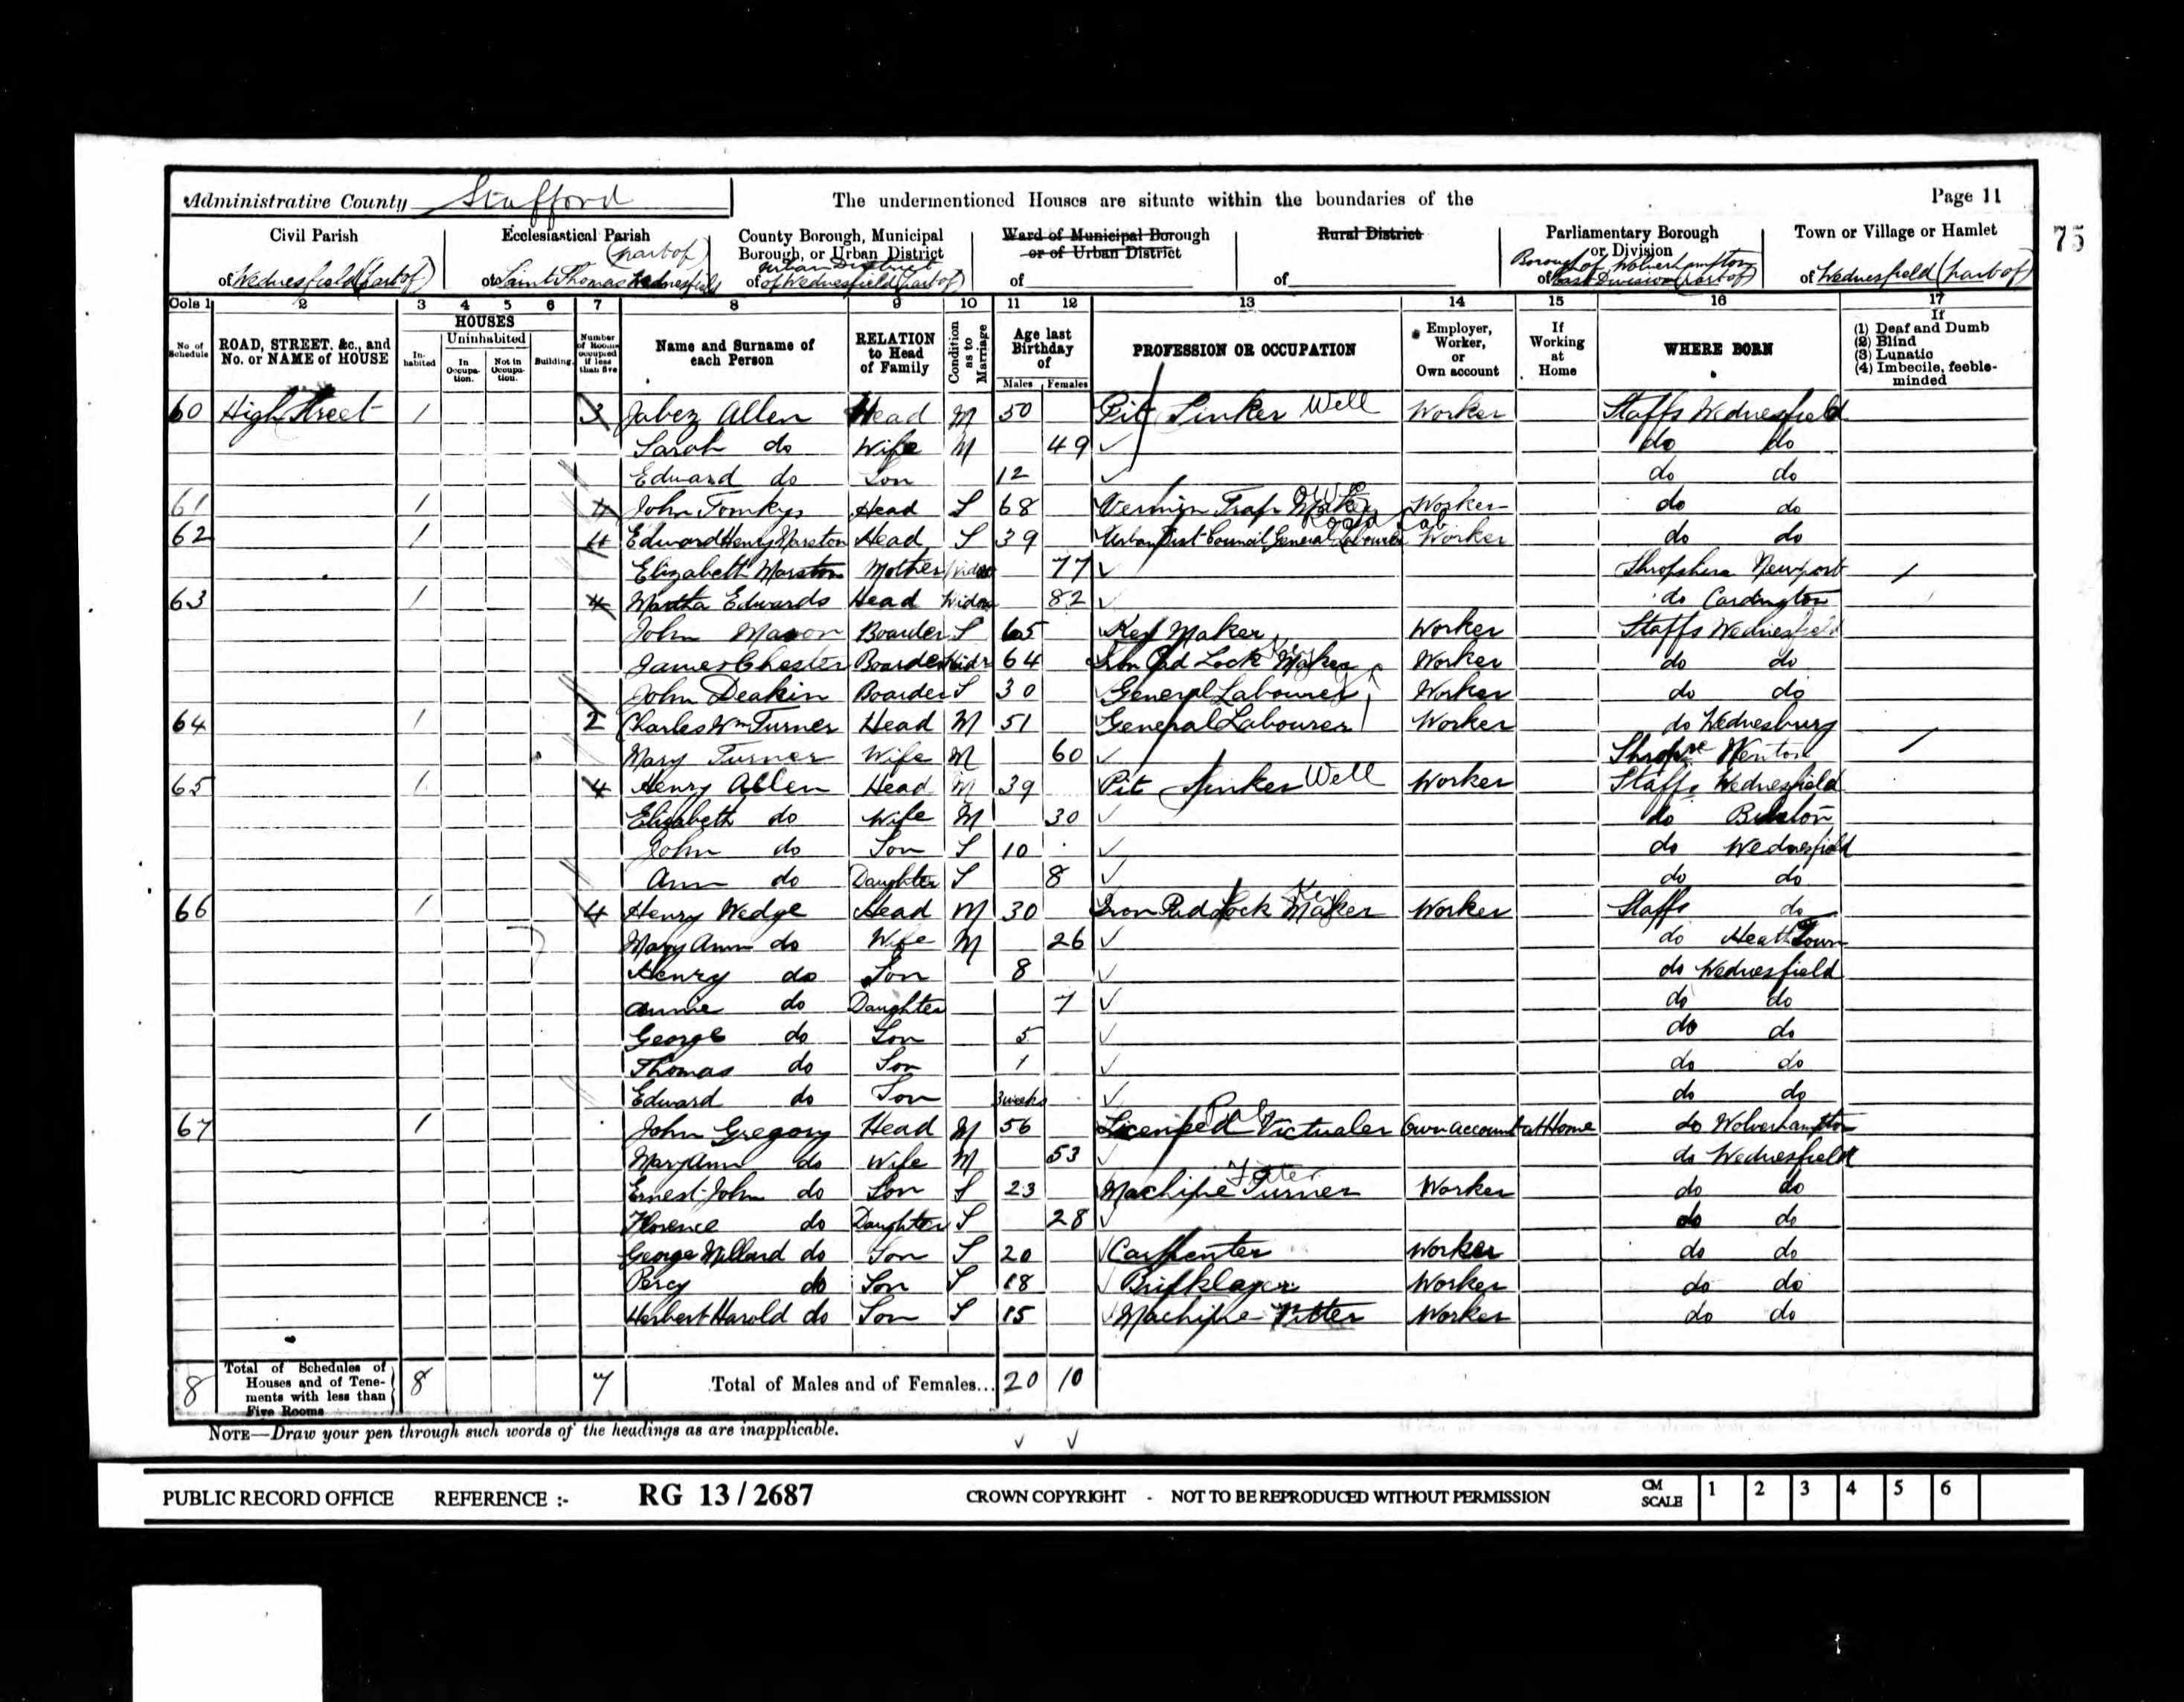 Administrative County Stafford
The undermentioned Houses are situate within the boundaries of the
Page 11
75
Civil Parish
of Wednesfield (part of)
Ecclesiastical Parish
(part of)
of Saint Thomas Wednesfield
County Borough, Municipal
Borough, or Urban District
Urban District
of of Wednesfield (part of)
Ward of Municipal Borough
or of Urban District
of
Rural District
of
Parliamentary Borough
or Division
Borough of Wolverhampton
of East Division (part of)
Town or Village or Hamlet
of Wednesfield (part of)
Cols 1 2 3 4 5 6 7 8 9 10 11 12 13 14 15 16 17
No. of Schedule
ROAD, STREET, &c., and
No. or NAME of HOUSE
HOUSES
In-habited
Uninhabited
In Occupa-tion.
Not in Occupa-tion.
Building.
Number of Rooms occupied if less than five
Name and Surname of
each Person
RELATION
to Head
of Family
Condition as to Marriage
Age last
Birthday
of
Males Females
PROFESSION OR OCCUPATION
Employer,
Worker,
or
Own account
If
Working
at
Home
WHERE BORN
If
(1) Deaf and Dumb
(2) Blind
(3) Lunatic
(4) Imbecile, feeble-
minded
60 High Street 1 3 Jabez Allen Head M 50 Pit Sinker Well Worker Staffs Wednesfield
Sarah do Wife M 49 do do
Edward do Son 12 do do
61 1 4 John Tomkys Head S 68 Vermin Trap Maker Worker do do
Road Lab
62 1 4 Edward Henry Marston Head S 39 Urban Dist Council General Labourer Worker do do
Elizabeth Marston Mother Widow 77 Shropshire Newport
63 1 4 Martha Edwards Head Widow 82 do Cardington
John Mason Boarder S 65 Key Maker Worker Staffs Wednesfield
James Chester Boarder Widr 64 Iron Pad Lock Maker Worker do do
John Deakin Boarder S 30 General Labourer Worker do do
64 1 2 Charles Wm Turner Head M 51 General Labourer Worker do Wednesbury
Mary Turner Wife M 60
65 1 4 Henry Allen Head M 39 Pit Sinker Well Worker Staffs Wednesfield
Elizabeth do Wife M 30 do Bilston
John do Son S 10 do Wednesfield
Ann do Daughter S 8 do do
66 1 4 Henry Wedge Head M 30 Iron Pad Lock Maker Key Worker Staffs do
Mary Ann do Wife M 26 do Heath Town
Henry do Son 8 do Wednesfield
Annie do Daughter 7 do do
George do Son 5 do do
Thomas do Son 1 do do
Edward do Son 3 weeks do do
67 1 John Gregory Head M 56 Licensed Victualer Own account at Home do Wolverhampton
Mary Ann do Wife M 53 do Wednesfield
Fitter
Ernest John do Son S 23 Machine Turner Worker do do
Florence do Daughter S 28 do do
George Millard do Son S 20 Carpenter Worker do do
Percy do Son S 18 Bricklayer Worker do do
Herbert Harold do Son S 15 Machine Fitter Worker do do
8 Total of Schedules of
Houses and of Tene-
ments with less than
Five Rooms
8 7 Total of Males and of Females... 20 10
NOTE—Draw your pen through such words of the headings as are inapplicable.
PUBLIC RECORD OFFICE REFERENCE :- RG 13 / 2687 CROWN COPYRIGHT - NOT TO BE REPRODUCED WITHOUT PERMISSION CM SCALE 1 2 3 4 5 6